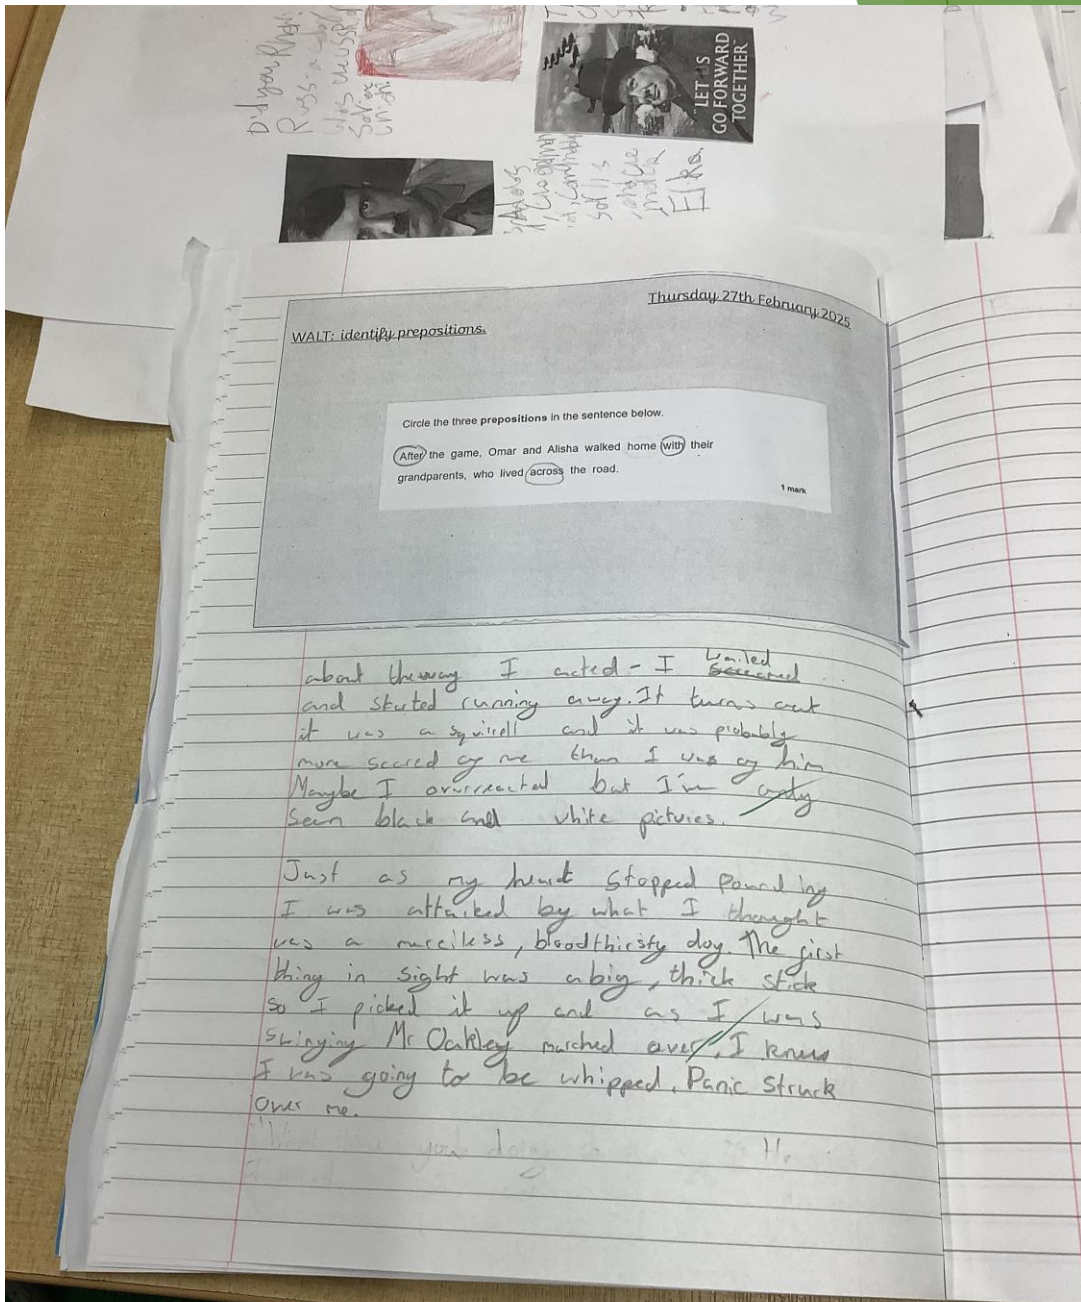 Did you know
Russ-a
was
"LET US
GO FORWARD
TOGETHER"
Thursday 27th February 2025
WALT: identify prepositions.
Circle the three prepositions in the sentence below.
After the game, Omar and Alisha walked home with their
grandparents, who lived across the road.
1 mark
about theway I acted - I wailed
and started running away. It turns out
it was a squirell and it was probably
more scared of me than I was of him.
Maybe I overreacted but I'm only
seen black and white pictures.
Just as my heart stopped pounding
I was attaked by what I thought
was a merciless, bloodthirsty dog. The first
thing in sight was a big, thick stick
so I picked it up and as I was
swinging Mr Oakley marched over, I knew
I was going to be whipped. Panic struck
over me.
you doing